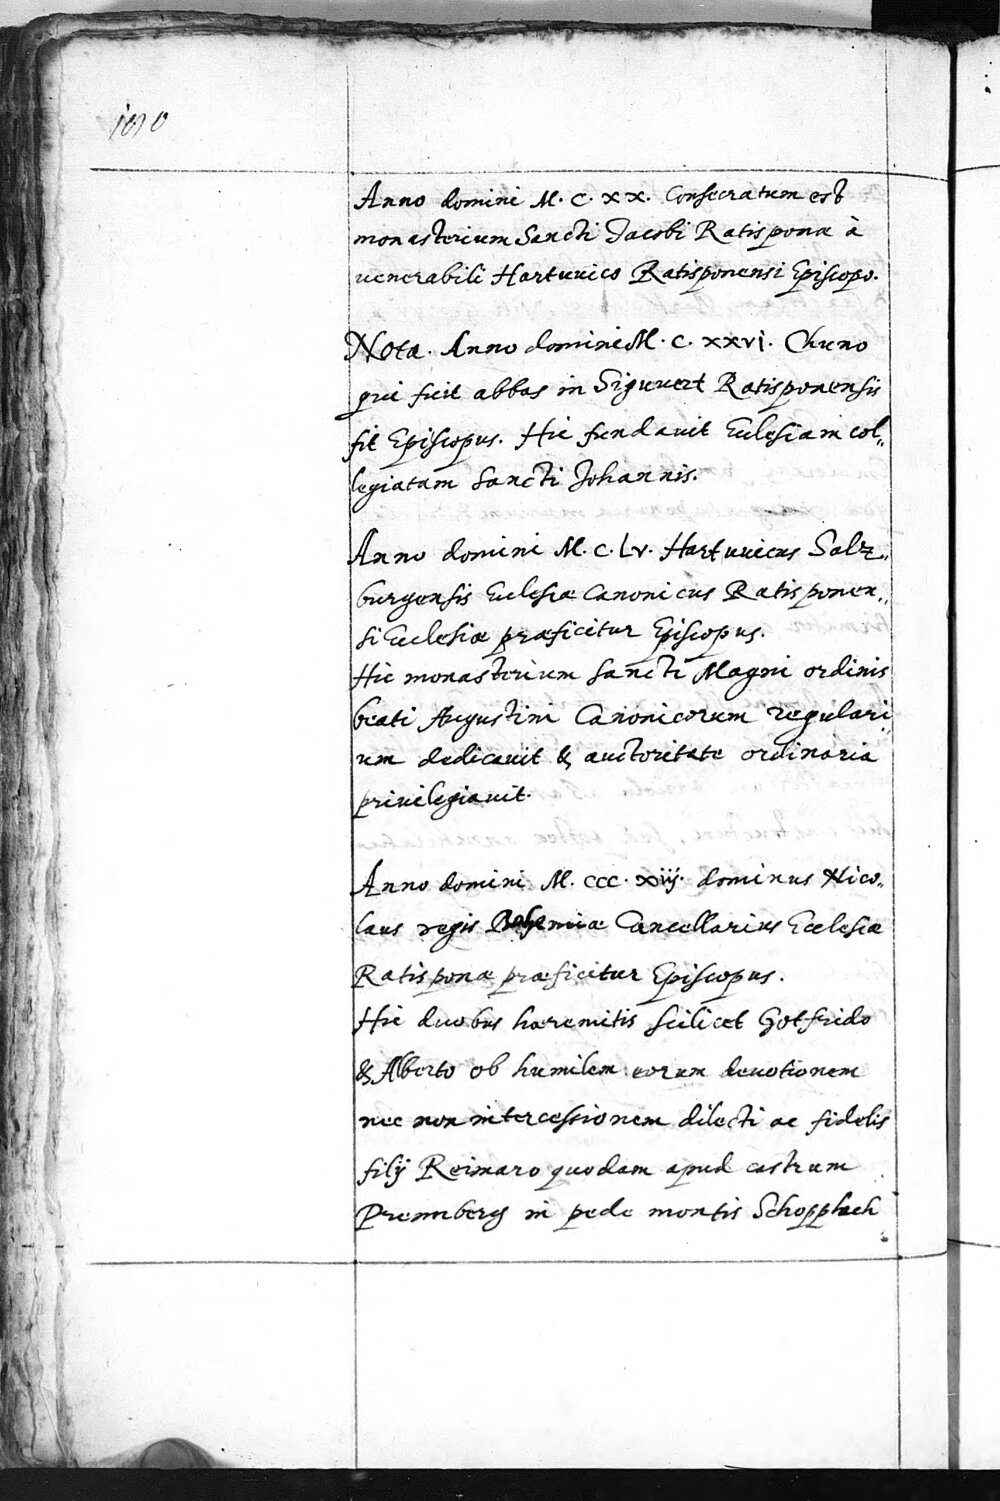 1070
Anno domini M. C. XX. Consecratum est
monasterium Sancti Jacobi Ratisponæ à
uenerabili Hartuuico Ratisponensi Episcopo.
Nota. Anno domini M. C. XXVI. Chuno
qui fuit abbas in Siguuert Ratisponensis
fit Episcopus. Hic fundauit Ecclesiam col„
legiatam Sancti Johannis.
Anno domini M. C. LV. Hartuuicus Salz„
burgensis Ecclesiæ Canonicus Ratisponen„
si Ecclesiæ præficitur Episcopus.
Hic monasterium Sancti Magni ordinis
beati Augustini Canonicorum regulari„
um dedicauit & auctoritate ordinaria
priuilegiauit.
Anno domini M. CCC. Xiij. dominus Nico„
laus regis Bohemiæ Cancellarius Ecclesiæ
Ratisponæ præficitur Episcopus.
Hic duobus hæremitis scilicet Gotfrido
& Alberto ob humilem eorum deuotionem
nec non intercessionem dilecti ac fidelis
filij Reimaro quodam apud castrum
Prennberg in pede montis Schopphech